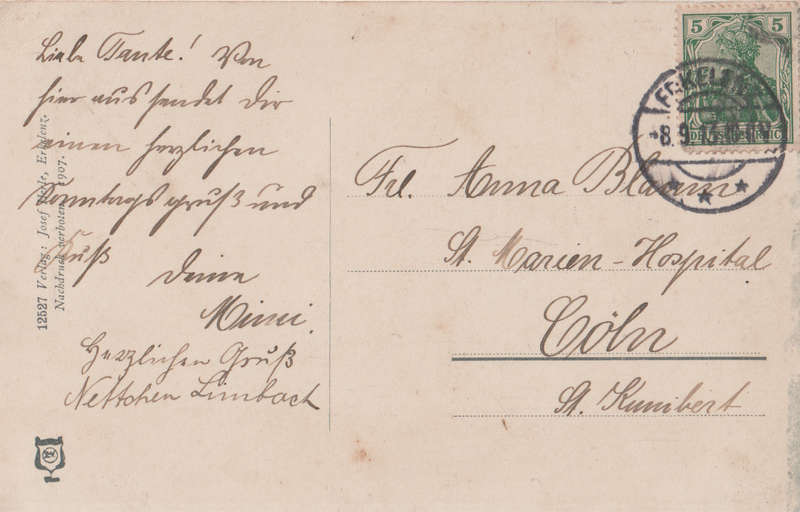 Liebe Tante! Von
hier aus sendet Dir
einen herzlichen
Sonntagsgruß und
Kuß
Deine
Mimi.
Herzlichen Gruß
Nettchen Limbach
12527 Verlag: Josef
Nachdruck verboten. 1907.
5 5
Frl. Anna Blaum
St. Marien-Hospital
Cöln
St. Kunibert